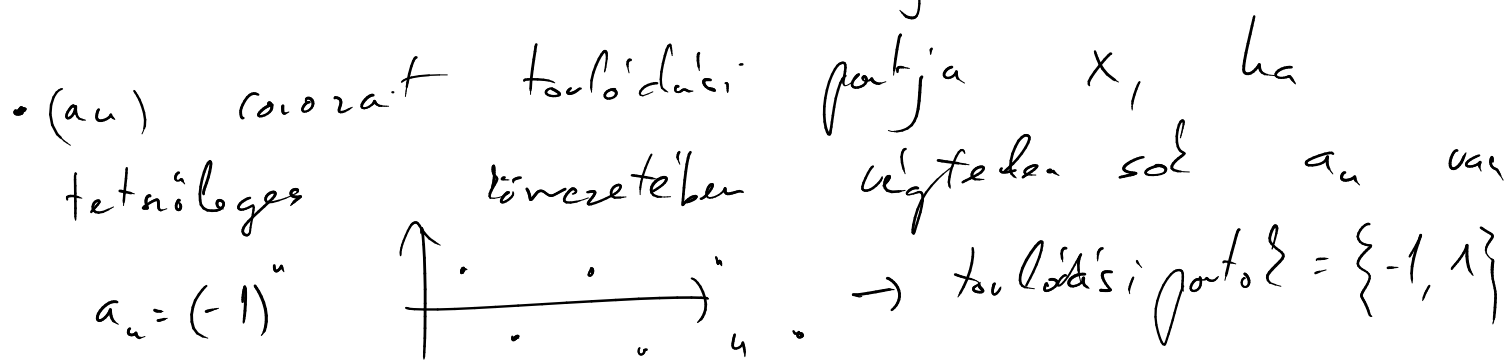 • (aₙ) sorozat torlódási pontja x, ha
tetszőleges környezetében végtelen sok aₙ van
aₙ = (-1)ⁿ n → torlódási pontok = {-1, 1}